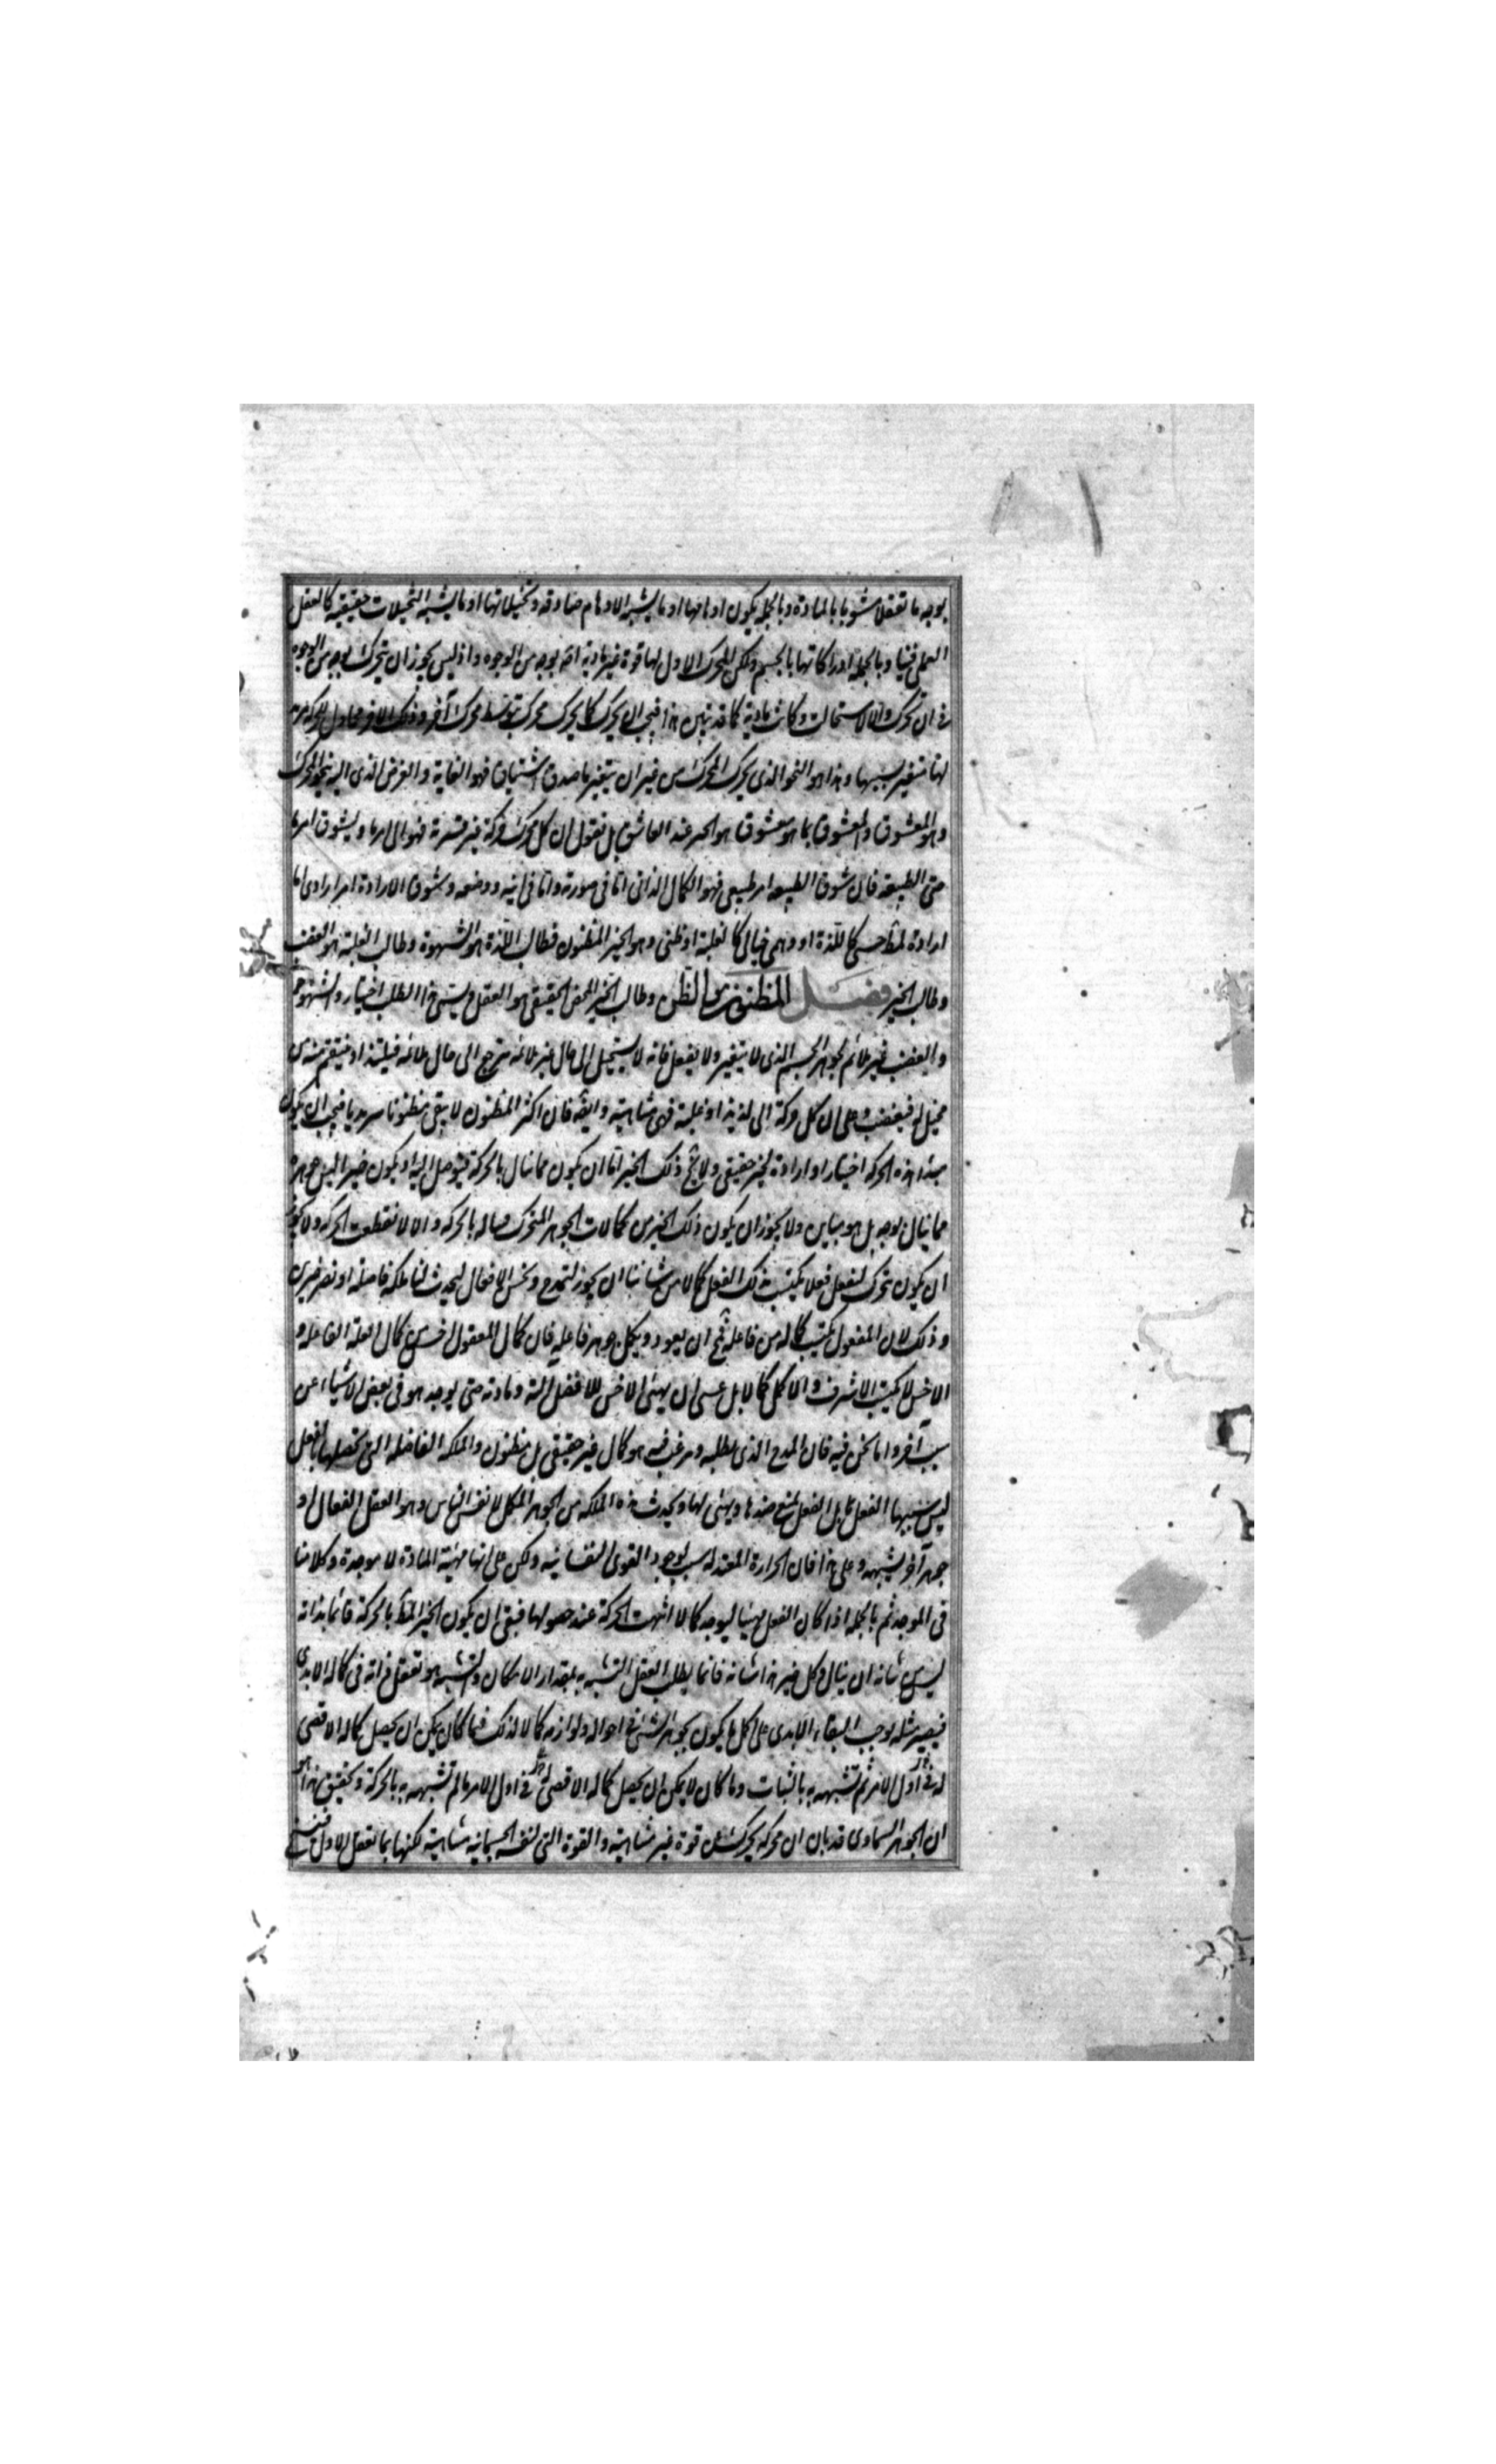 بوجه ما تعقلا مشوبا بالمادة وبالجملة يكون اوهامها او ما يشبه الاوهام صادقه وتخيلاتها او ما يشبه التخيلات حقيقية كالعقل
العملى فينا وبالجملة ادراكاتها بالجسم ولكن المحرك الاول لها قوة غير مادية اصلا بوجه من الوجوه واذ ليس يجوز ان يتحرك بوجه من الوجوه
فى ان تحرك والا لاستحالت وكانت مادية كما قد تبين هذا فيجب ان يحرك كما يحرك محرك بتوسط محرك آخر وذلك الاخر محاول للحركة مريد
لها متغير بسببها وهذا هو النحو الذى يحرك المحرك من غير ان يتغير بقصد واشتياق فهو الغاية والغرض الذى اليه ينحو المحرك
وهو المعشوق والمعشوق بما هو معشوق هو الخير عند العاشق بل نقول ان كل محرك حركة غير قسرية فهو الى امر ما وبشوق امر ما
حتى الطبيعة فان شوق الطبيعه امر طبيعى فهو الكمال الذاتى اما فى صورته واما فى اينه ووضعه وشوق الارادة امر ارادى اما
ارادة لمط حسى كاللذة او وهمى خيالى كالغلبة او ظنى وهو الخير المظنون فطالب اللذة هو الشهوة وطالب الغلبة هو الغضب
وطالب الخير فصل المظنون هو الظن وطالب الخير المحض الحقيقى هو العقل ويسمى هذا الطلب اختيارا والشهوة
والغضب غير ملائم لجوهر الجسم الذى لا يتغير ولا ينفعل فانه لا يستحيل الى حال غير ملائمه فيرجع الى حال ملائمه فيلتذ او ينتقم من
مخيل له فيغضب وعلى ان كل حركة الى لذيذ او غلبة فهى متناهية وايضه فان اكثر المظنون لا يبقى مظنونا سرمديا فيجب ان يكون
مبدا هذه الحركه اختيارا وارادة لخير حقيقى ولا يخ ذلك الخير اما ان يكون مما ينال بالحركة فيتوصل اليه او يكون خيرا ليس جوهره
مما ينال بوجه بل هو مباين ولا يجوز ان يكون ذلك الخير من كمالات الجوهر المتحرك فيناله بالحركه والا لانقطعت الحركه ولا يجوز
ان يكون يتحرك ليفعل فعلا يكتسب بذلك الفعل كمالا من شاننا ان يجوز لنمدح ونحسن الافعال ليحدث لنا ملكه فاضلة او نصير خيرين
وذلك لان المفعول يكتسب كماله من فاعله فمح ان يعود ويكمل جوهر فاعليه فان كمال المعلول اخس من كمال العلة الفاعله و
الاخس لا يكسب الاشرف والاكمل كمالا بل عسى ان يهيئ الاخس للافضل آلته ومادته حتى يوجد هو فى بعض الاشياء عن
سبب آخر واما نحن فيه فان المدح الذى نطلبه ونرغب فيه هو كمال غير حقيقى بل مظنون والملكه الفاضله التى نحصلها بالفعل
ليس سببها الفعل بل الفعل يمنع ضدها ويهيئ لها ويحدث هذه الملكه من الجوهر المكمل لانفس الناس وهو العقل الفعال او
جوهر آخر يشبهه وعلى هذا فان الحرارة المعتدله سبب لوجود القوى النفسانيه ولكن على انها مهيئة للمادة لا موجدة وكلامنا
فى الموجد ثم بالجملة اذا كان الفعل يهيئا ليوجد كمالا انتهت الحركة عند حصولها فبقى ان يكون الخير المط بالحركة قائما بذاته
ليس من شانه ان ينال وكل خير هذا شانه فانما يطلب العقل التشبه به بمقدار الامكان والتشبه به هو تعقل ذاته فى كماله الابدى
فيصير مثله بوجب البقاء الابدى على اكمل ما يكون بجوهر الشئ فى احواله ولوازمه كمالا لذلك فما كان يمكن ان يحصل كماله الاقصى
له فى اول الامر ثم تشبهه به بالثبات وما كان لا يمكن ان يحصل كماله الاقصى له فى اول الامر ما لم تشبهه به بالحركة وتحقيق هذا هو
ان الجوهر السماوى قد بان ان محركه يحرك عن قوة غير متناهية والقوة التى لنفسه الجسمانية متناهية لكنها بما تعقل الاول